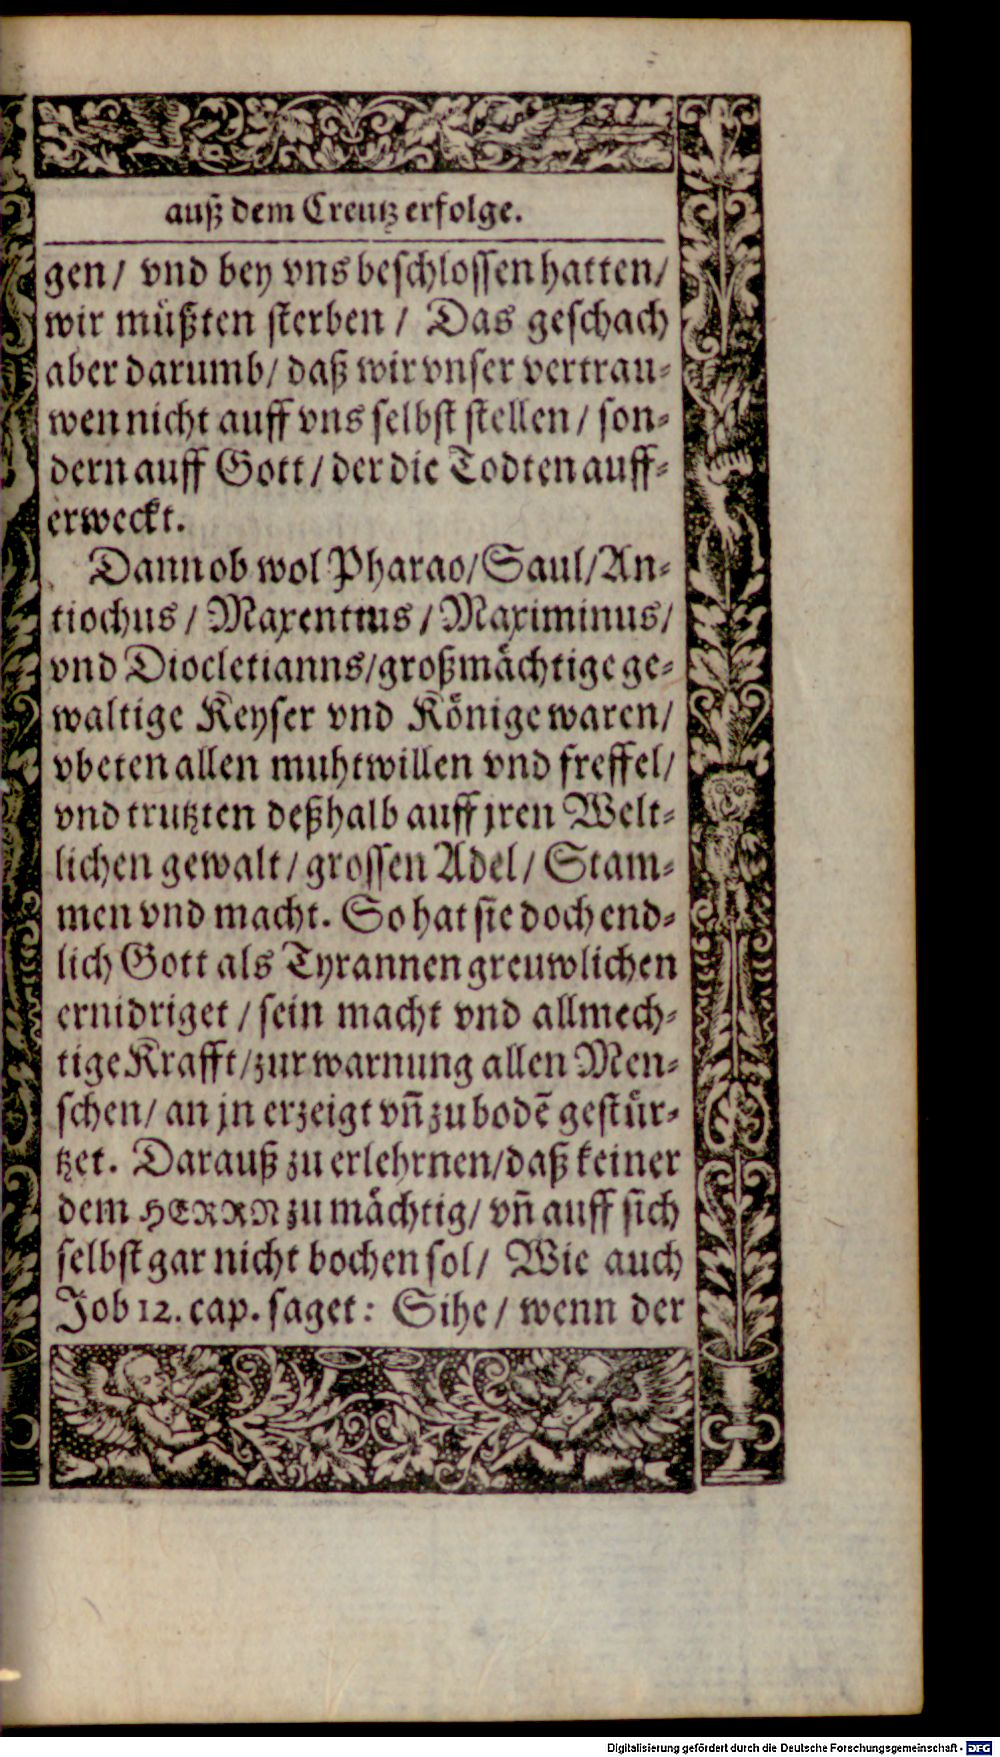 auß dem Creutz erfolge.
gen/ vnd bey vns beschlossen hatten/
wir müßten sterben / Das geschach
aber darumb/ daß wir vnser vertrau-
wen nicht auff vns selbst stellen / son-
dern auff Gott / der die Todten auff-
erweckt.
Dann ob wol Pharao/Saul/An-
tiochus / Maxentius / Maximinus/
vnd Diocletianns/großmächtige ge-
waltige Keyser vnd Könige waren/
vbeten allen muhtwillen vnd freffel/
vnd trutzten deßhalb auff jren Welt-
lichen gewalt / grossen Adel / Stam-
men vnd macht. So hat sie doch end-
lich Gott als Tyrannen greuwlichen
ernidriget / sein macht vnd allmech-
tige Krafft/zur warnung allen Men-
schen/ an jn erzeigt vñ zu bodē gestür-
tzet. Darauß zu erlehrnen/daß keiner
dem HERRN zu mächtig/ vñ auff sich
selbst gar nicht bochen sol/ Wie auch
Job 12. cap. saget: Sihe / wenn der
Digitalisierung gefördert durch die Deutsche Forschungsgemeinschaft - DFG